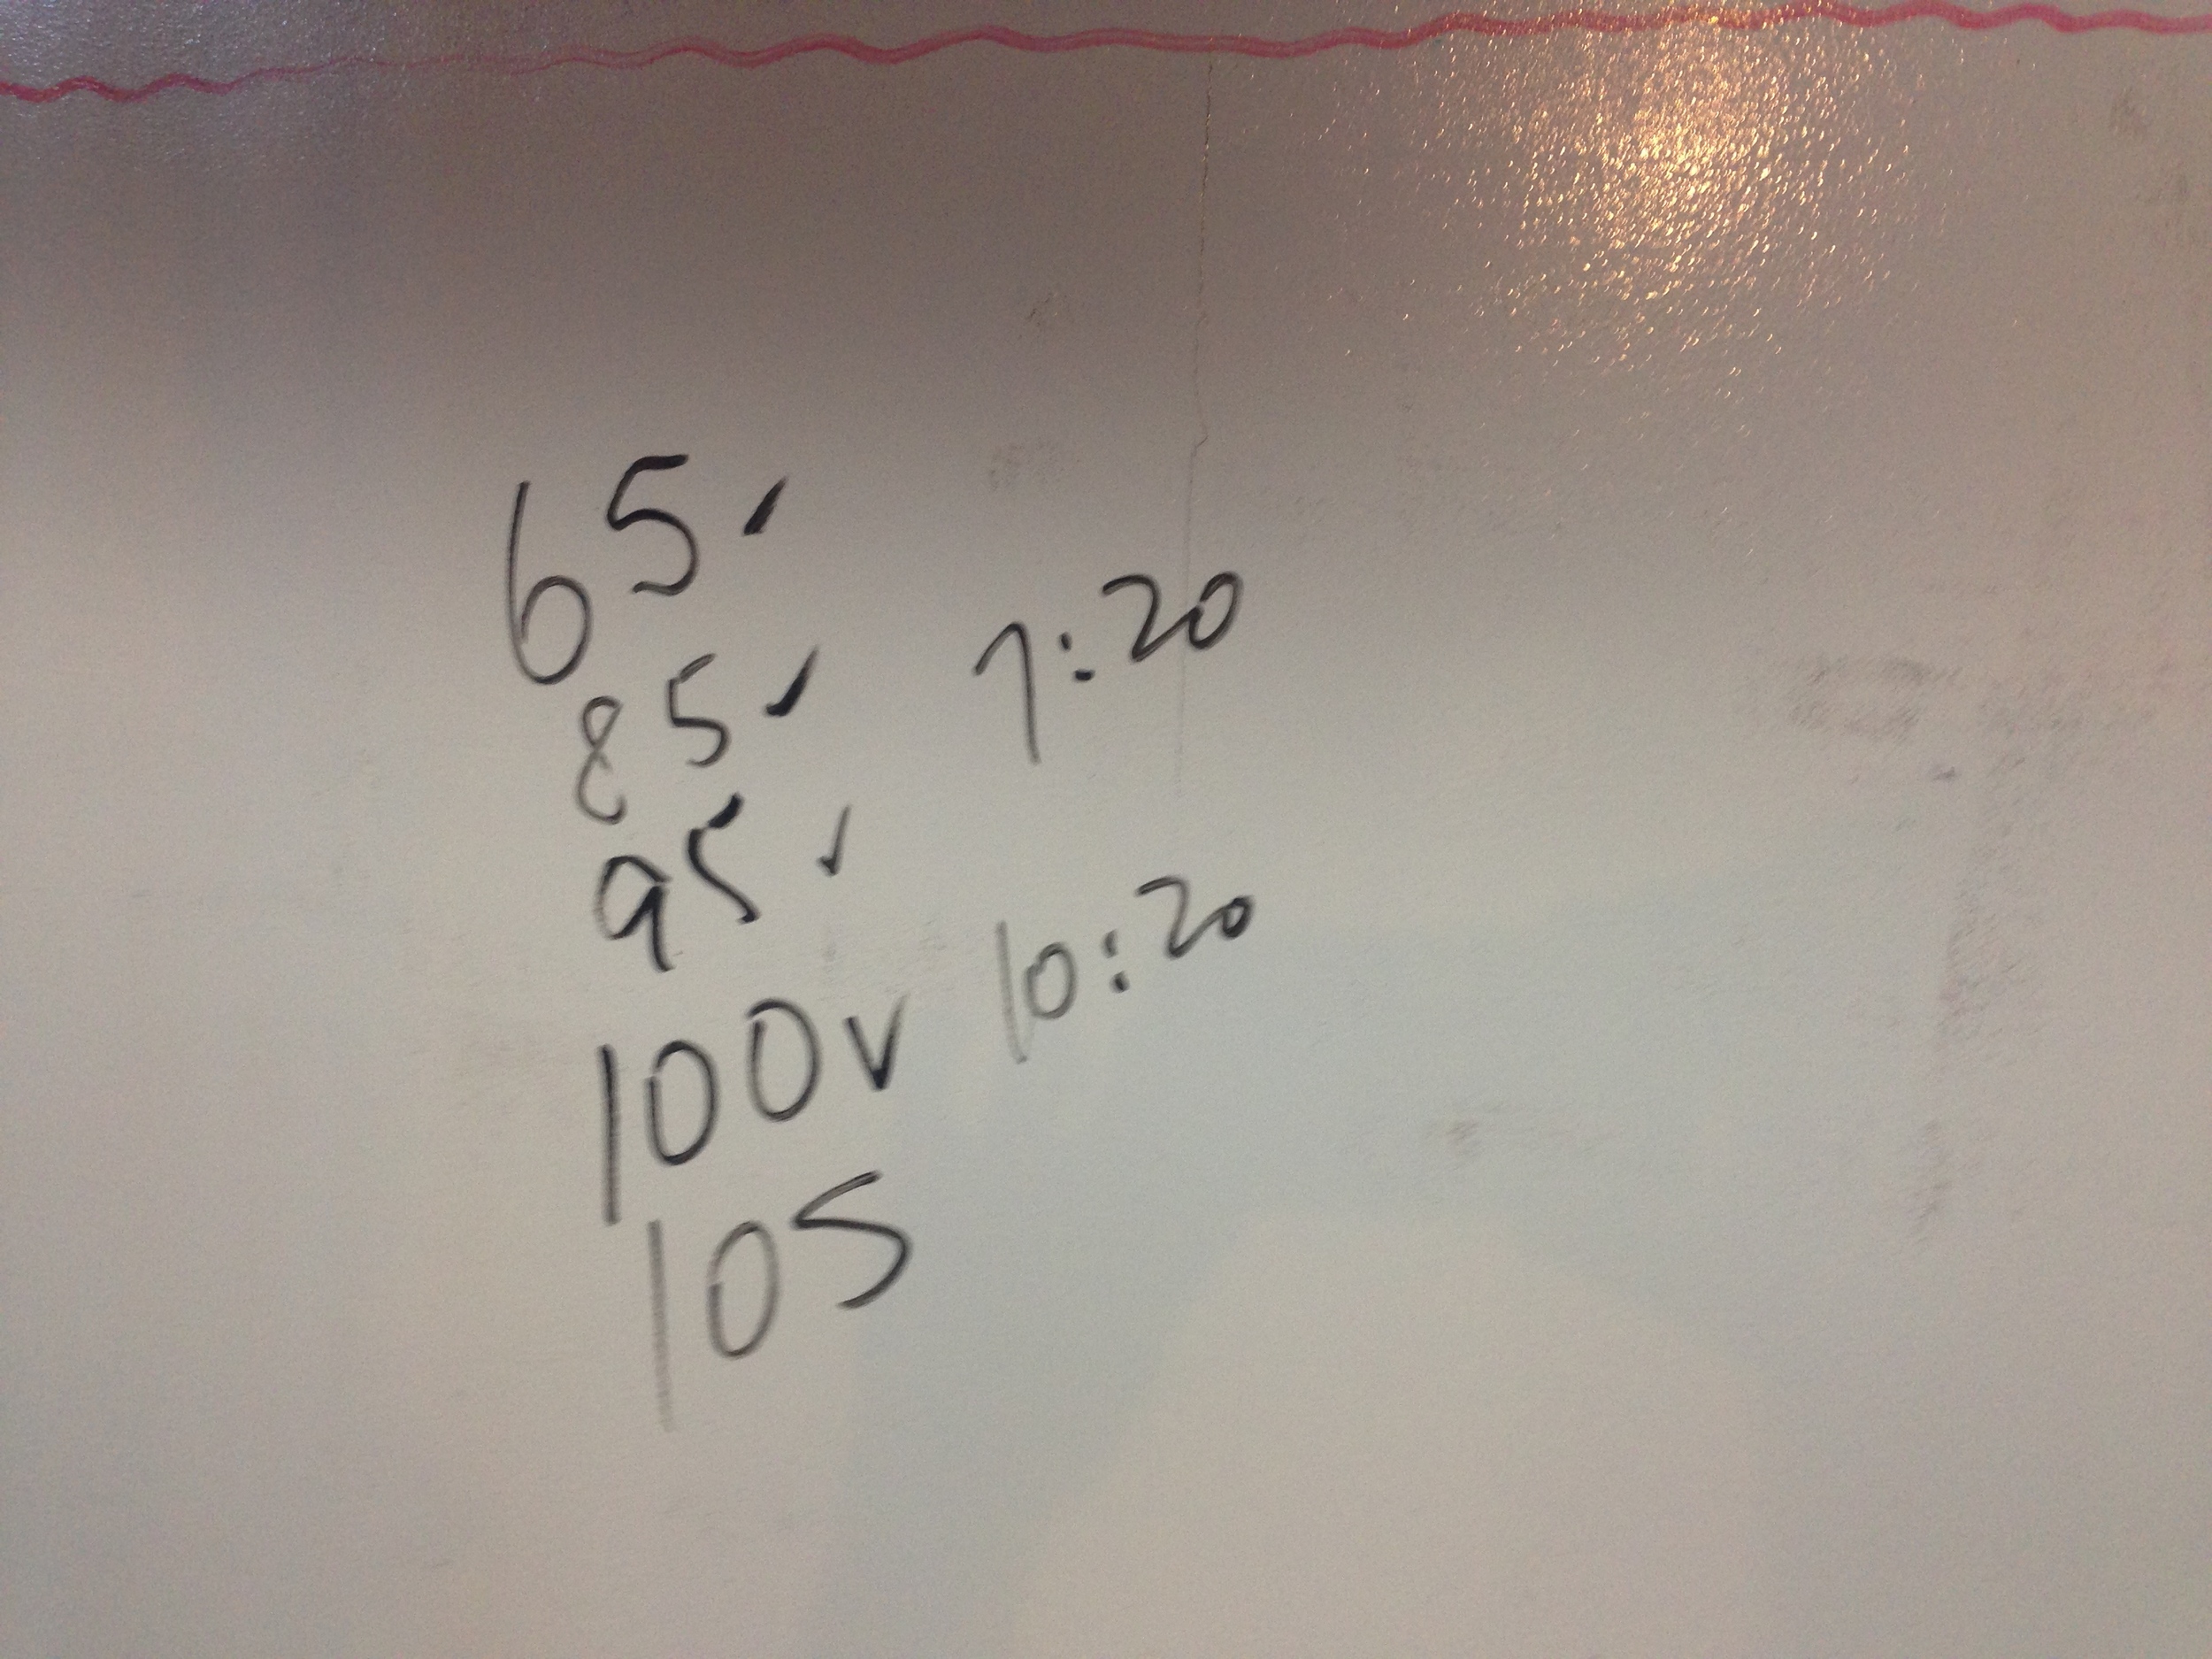 65 ✓
85 ✓ 7:20
95 ✓
100 ✓ 10:20
105